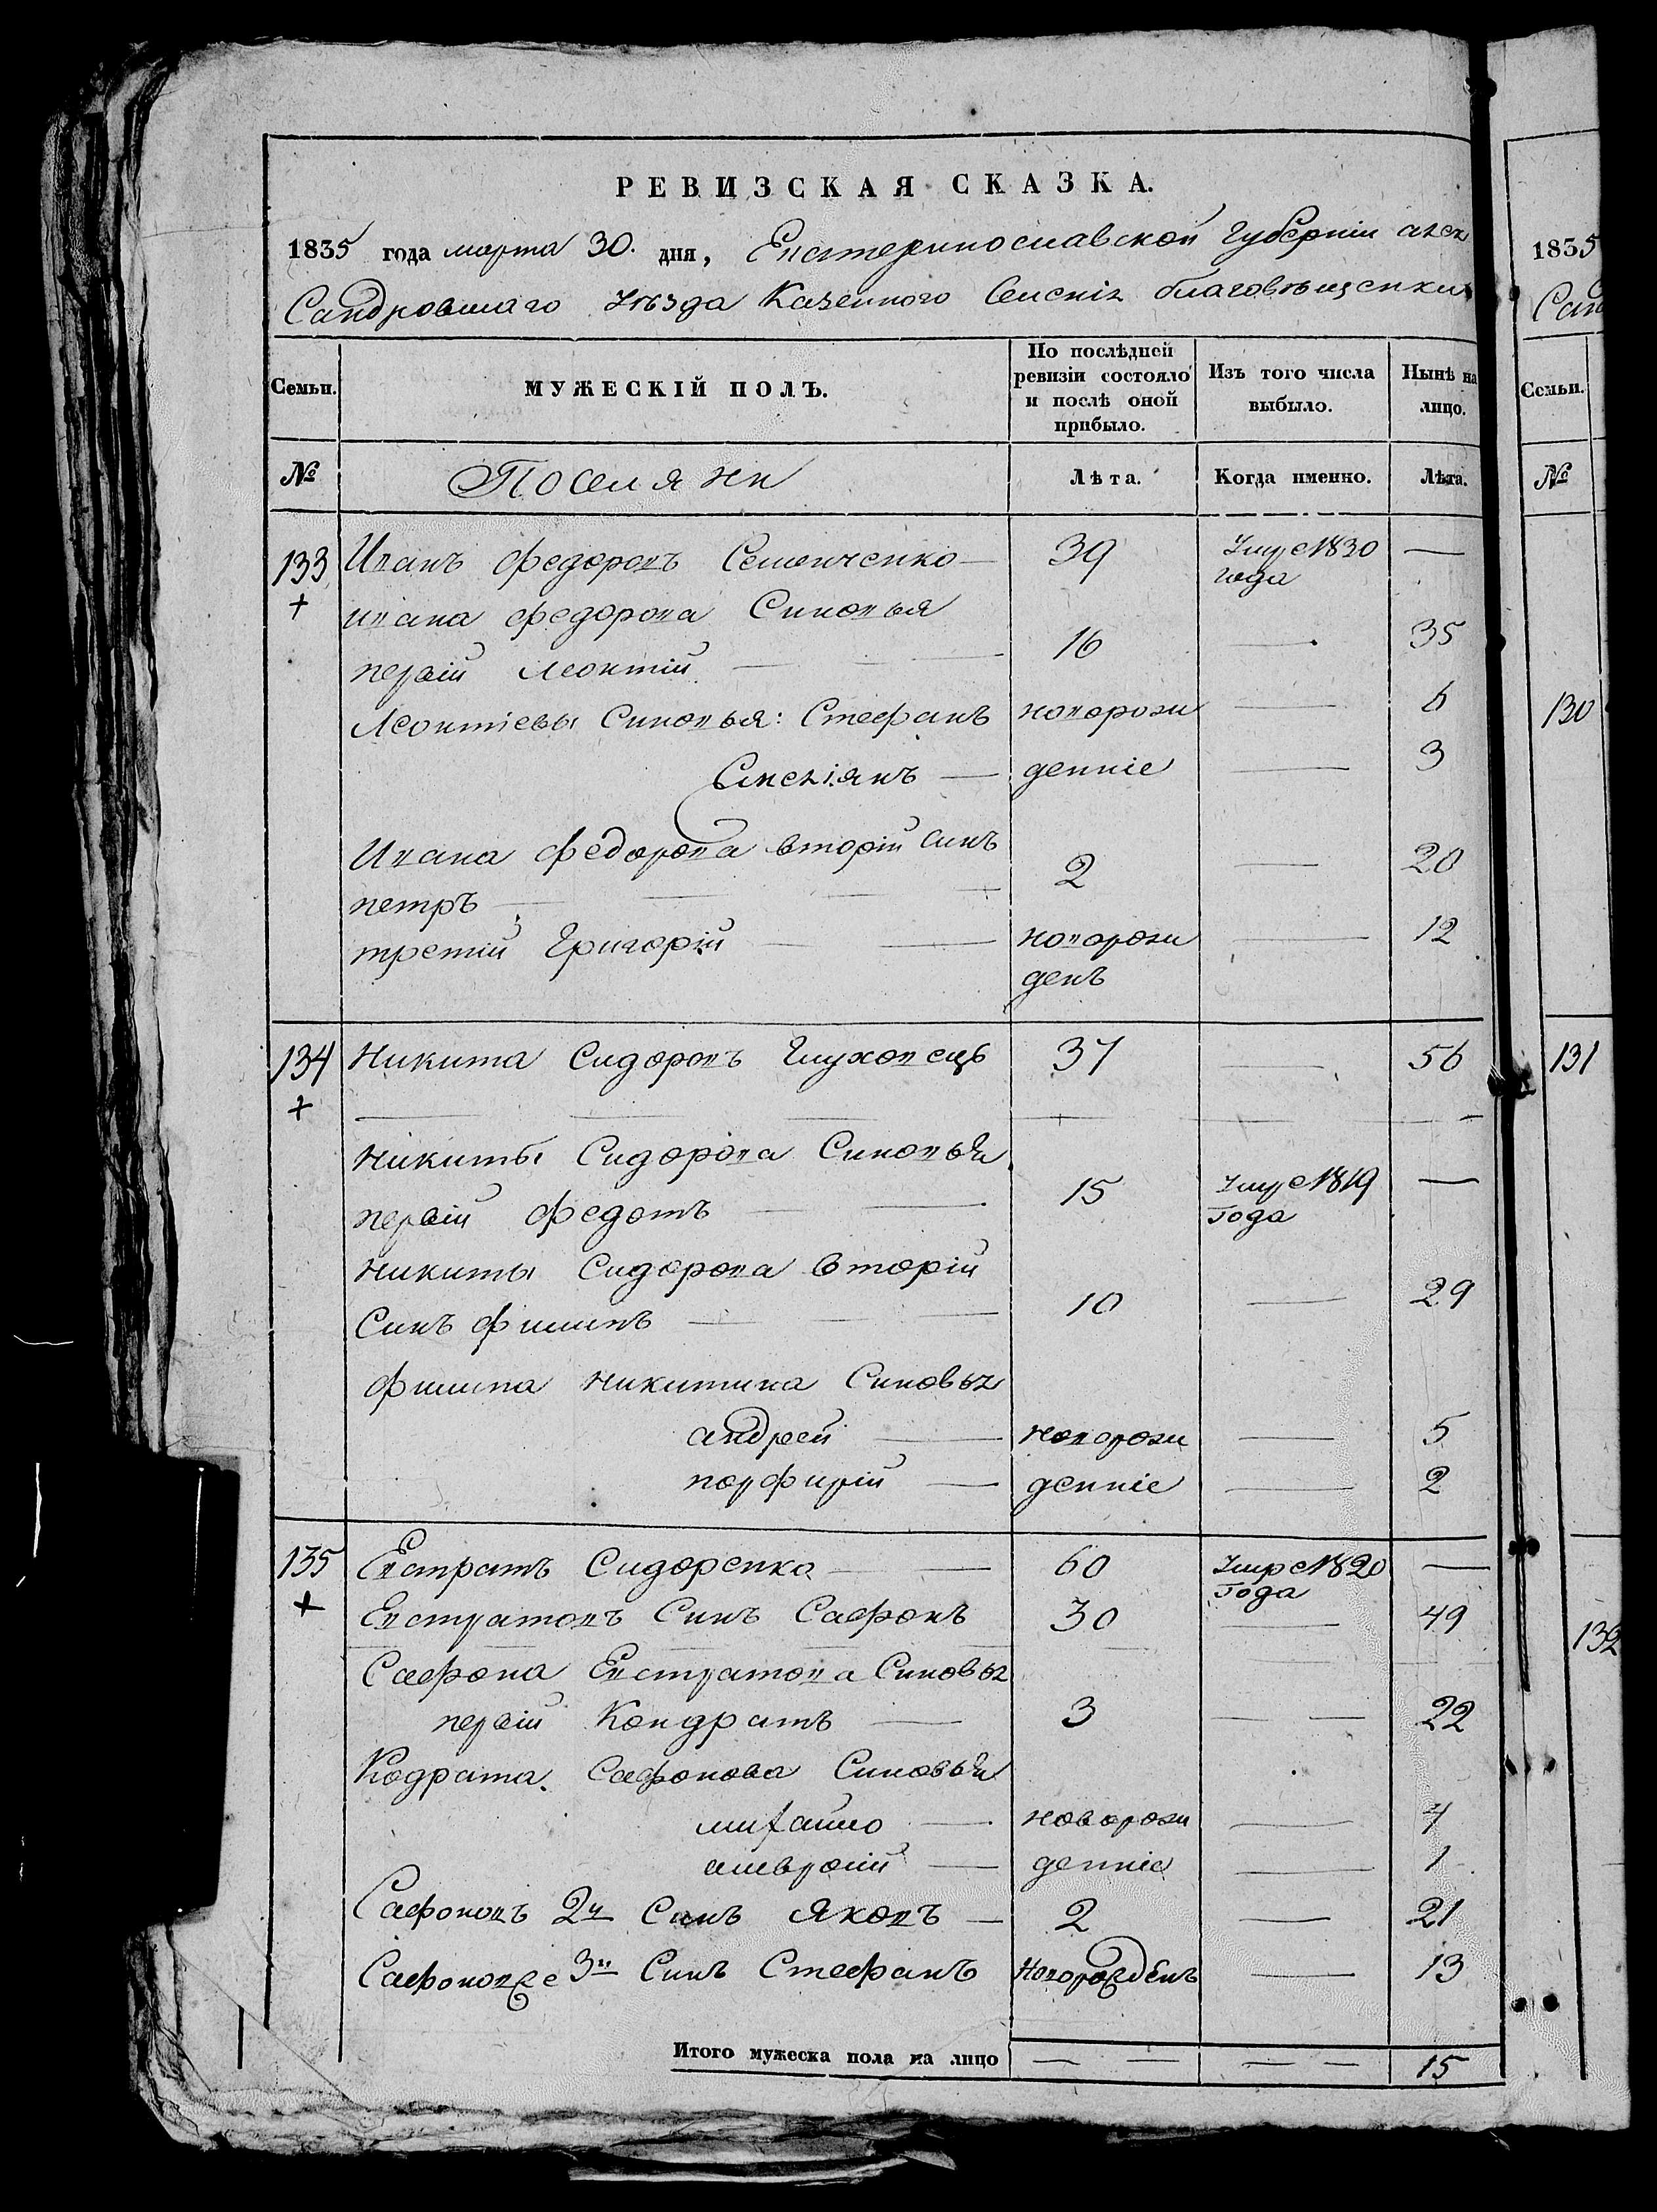 РЕВИЗСКАЯ СКАЗКА.
1835 года марта 30. дня, Екатеринославской Губерніи алек
Сандровшаго уѣзда Казенного Селенія благовѣщенки
Семьи. МУЖЕСКІЙ ПОЛЪ. По послѣдней ревизіи состояло и послѣ оной прибыло. Изъ того числа выбыло. Нынѣ на лицо.
№ Поселяни Лѣта. Когда именно. Лѣта.
133 Иванъ Федоровъ Семенченко — 39 умре 1830 года —
+ ивана Федорова Синовья
первій Леонтій — 16 — 35
Леонтіевы Синовья: Стефанъ новорож — 6
— денніе — 3
Ивана Федорова вторій синъ
петръ — 2 — 20
третій Григорій — новорож — 12
денъ
134 Никита Сидоровъ Глуховець 37 — 56
+
Никиты Сидорова Синовья
первій Федотъ — 15 умре 1819 Года —
Никиты Сидорова вторій
Синъ Филипъ — 10 — 29
Филипа Никитина Синовья
андрей — новорож — 5
порфирій — денніе — 2
135 Евстратъ Сидоренко — 60 умре 1820 Года —
+ Евстратовъ Синъ Сафонъ 30 — 49
Сафона Евстратова Синовья
первій Кондратъ — 3 — — 22
Кодрата Сафонова Синовья
михайло — новорож — 4
амвросій — денніе — 1
Сафоновъ 2й Синъ Яковъ — 2 — 21
Сафоновже 3й Синъ Стефанъ новорожденъ — 13
Итого мужеска пола на лицо — — — — 15
1835
Сан
Семьи.
№
130
131
132